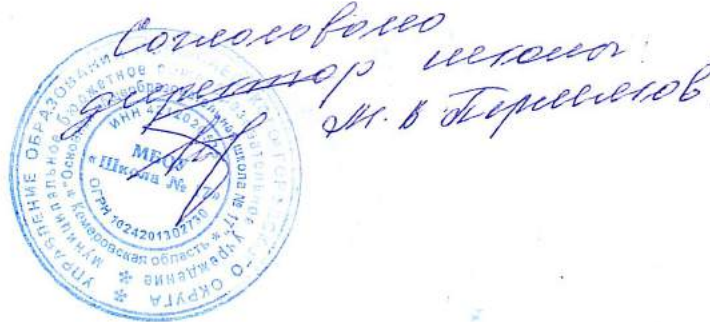 Согласовано
директор школы:
М. В.
УПРАВЛЕНИЕ ОБРАЗОВАНИ ОКРУГА
Муниципальное бюджетное учреждение
"Основная общеобразовательная школа № 17"
Кемеровская область
ИНН
МБОУ
«Школа № 17»
ОГРН 1024201302730